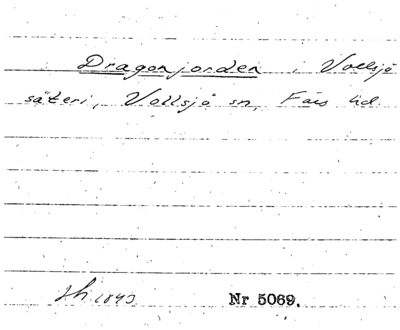 Dragonjorden, Vollsjö
säteri, Vollsjö sn, Färs hd.
1843 Nr 5069.